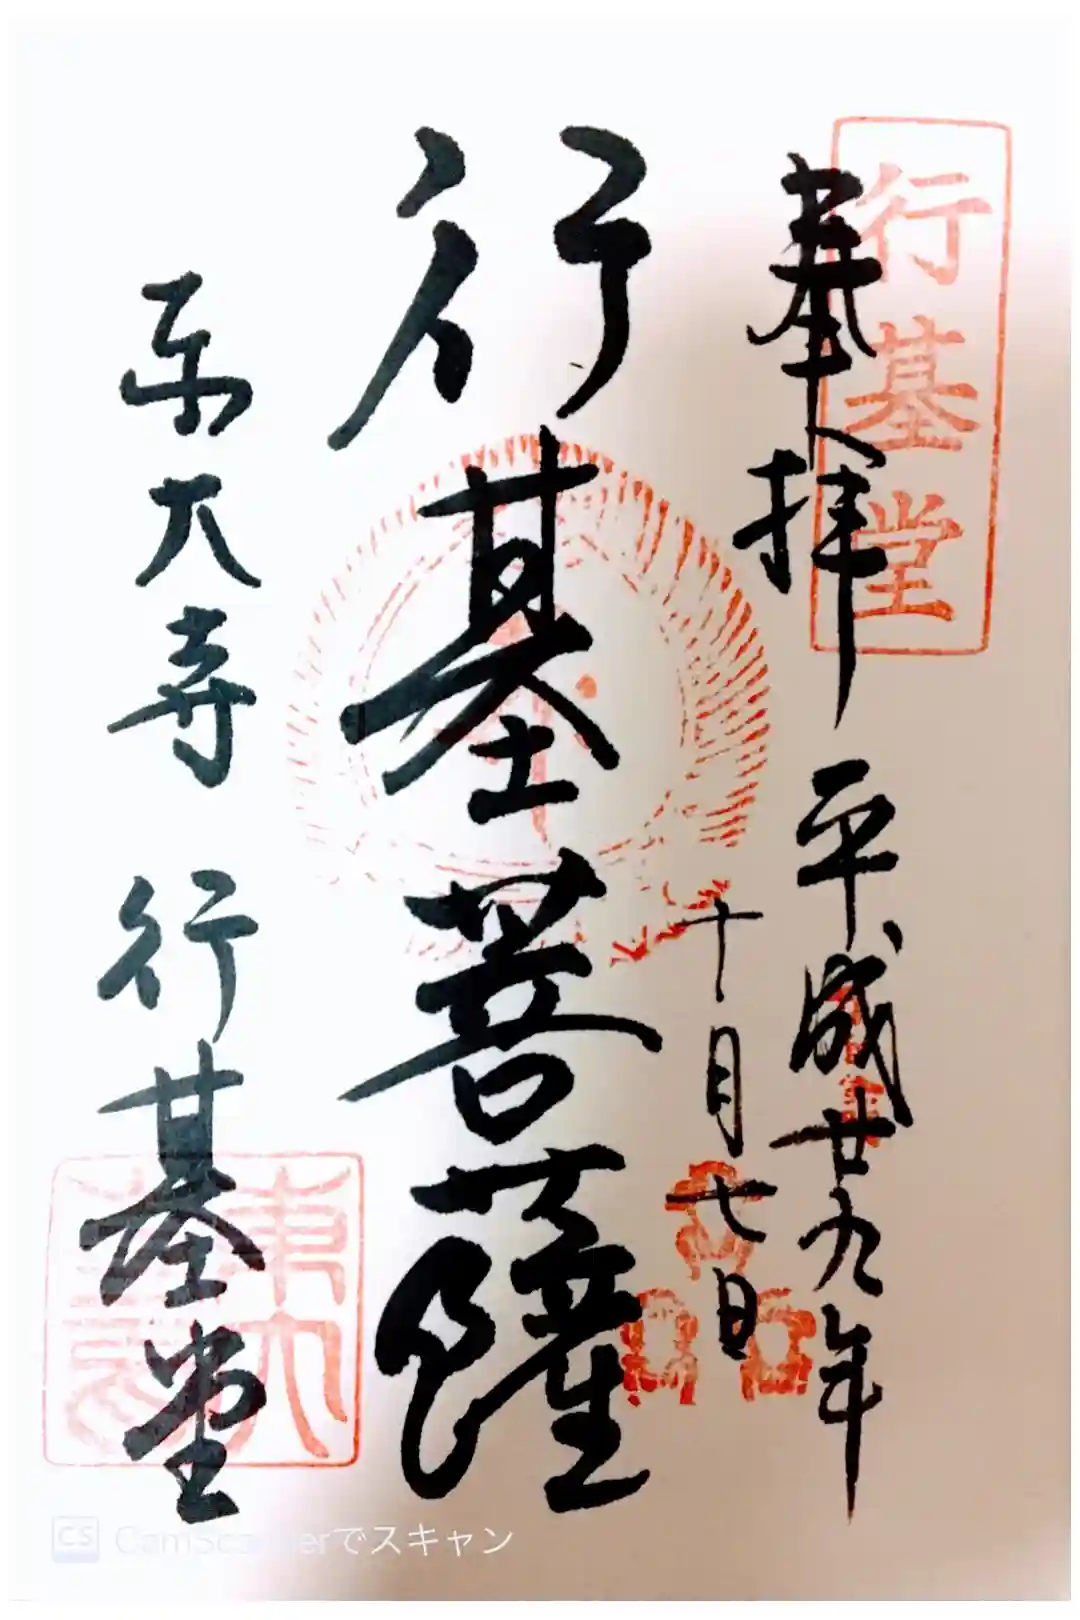 行基堂
奉拝
平成廿九年
十月七日
行基菩薩
東大寺 行基堂
東大
CS CamScannerでスキャン